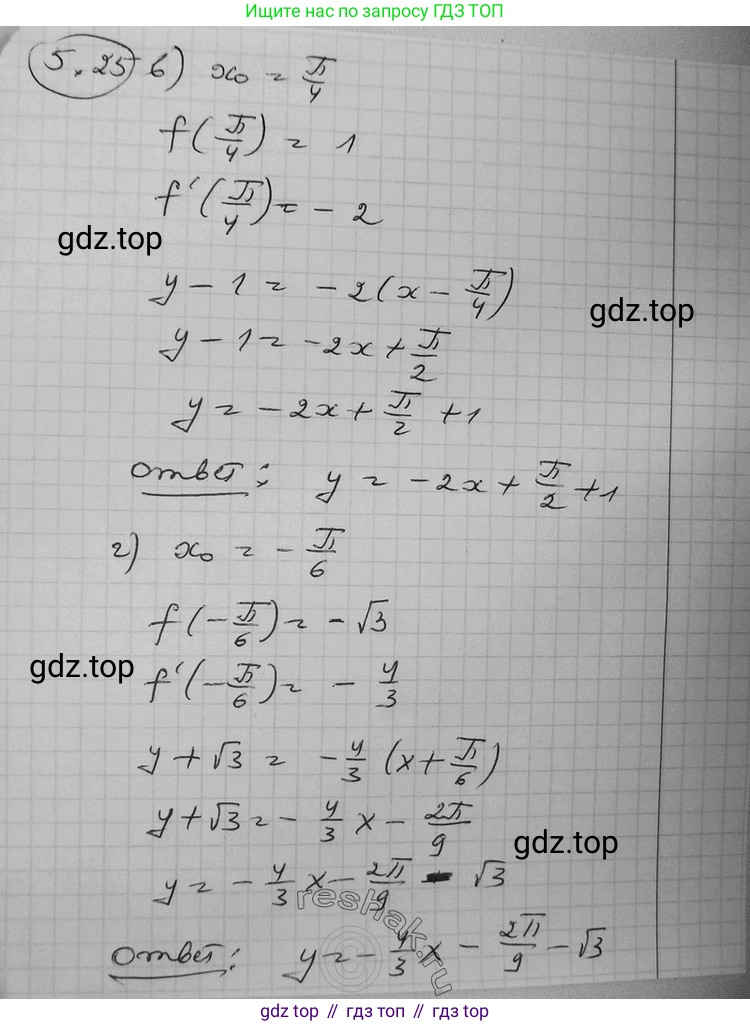 Ищите нас по запросу ГДЗ ТОП
5.25 в) x₀ = π/4
f(π/4) = 1
f'(π/4) = - 2
gdz.top
y - 1 = -2(x - π/4)
gdz.top
y - 1 = -2x + π/2
y = -2x + π/2 + 1
Ответ: y = -2x + π/2 + 1
г) x₀ = - π/6
f(-π/6) = -√3
gdz.top
f'(-π/6) = - 4/3
y + √3 = -4/3 (x + π/6)
y + √3 = - 4/3 x - 2π/9
gdz.top
y = - 4/3 x - 2π/9 - √3
reshak.ru
Ответ: y = - 4/3 x - 2π/9 - √3
gdz top // гдз топ // gdz top // гдз топ